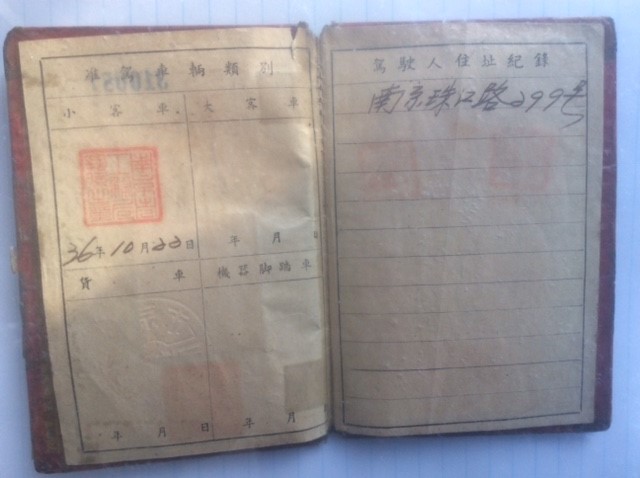 准駕車輛類別
小客車
大客車
36年10月22日
年 月 日
貨車
機器脚踏車
年 月 日
年 月
駕駛人住址紀錄
南京珠江路299号